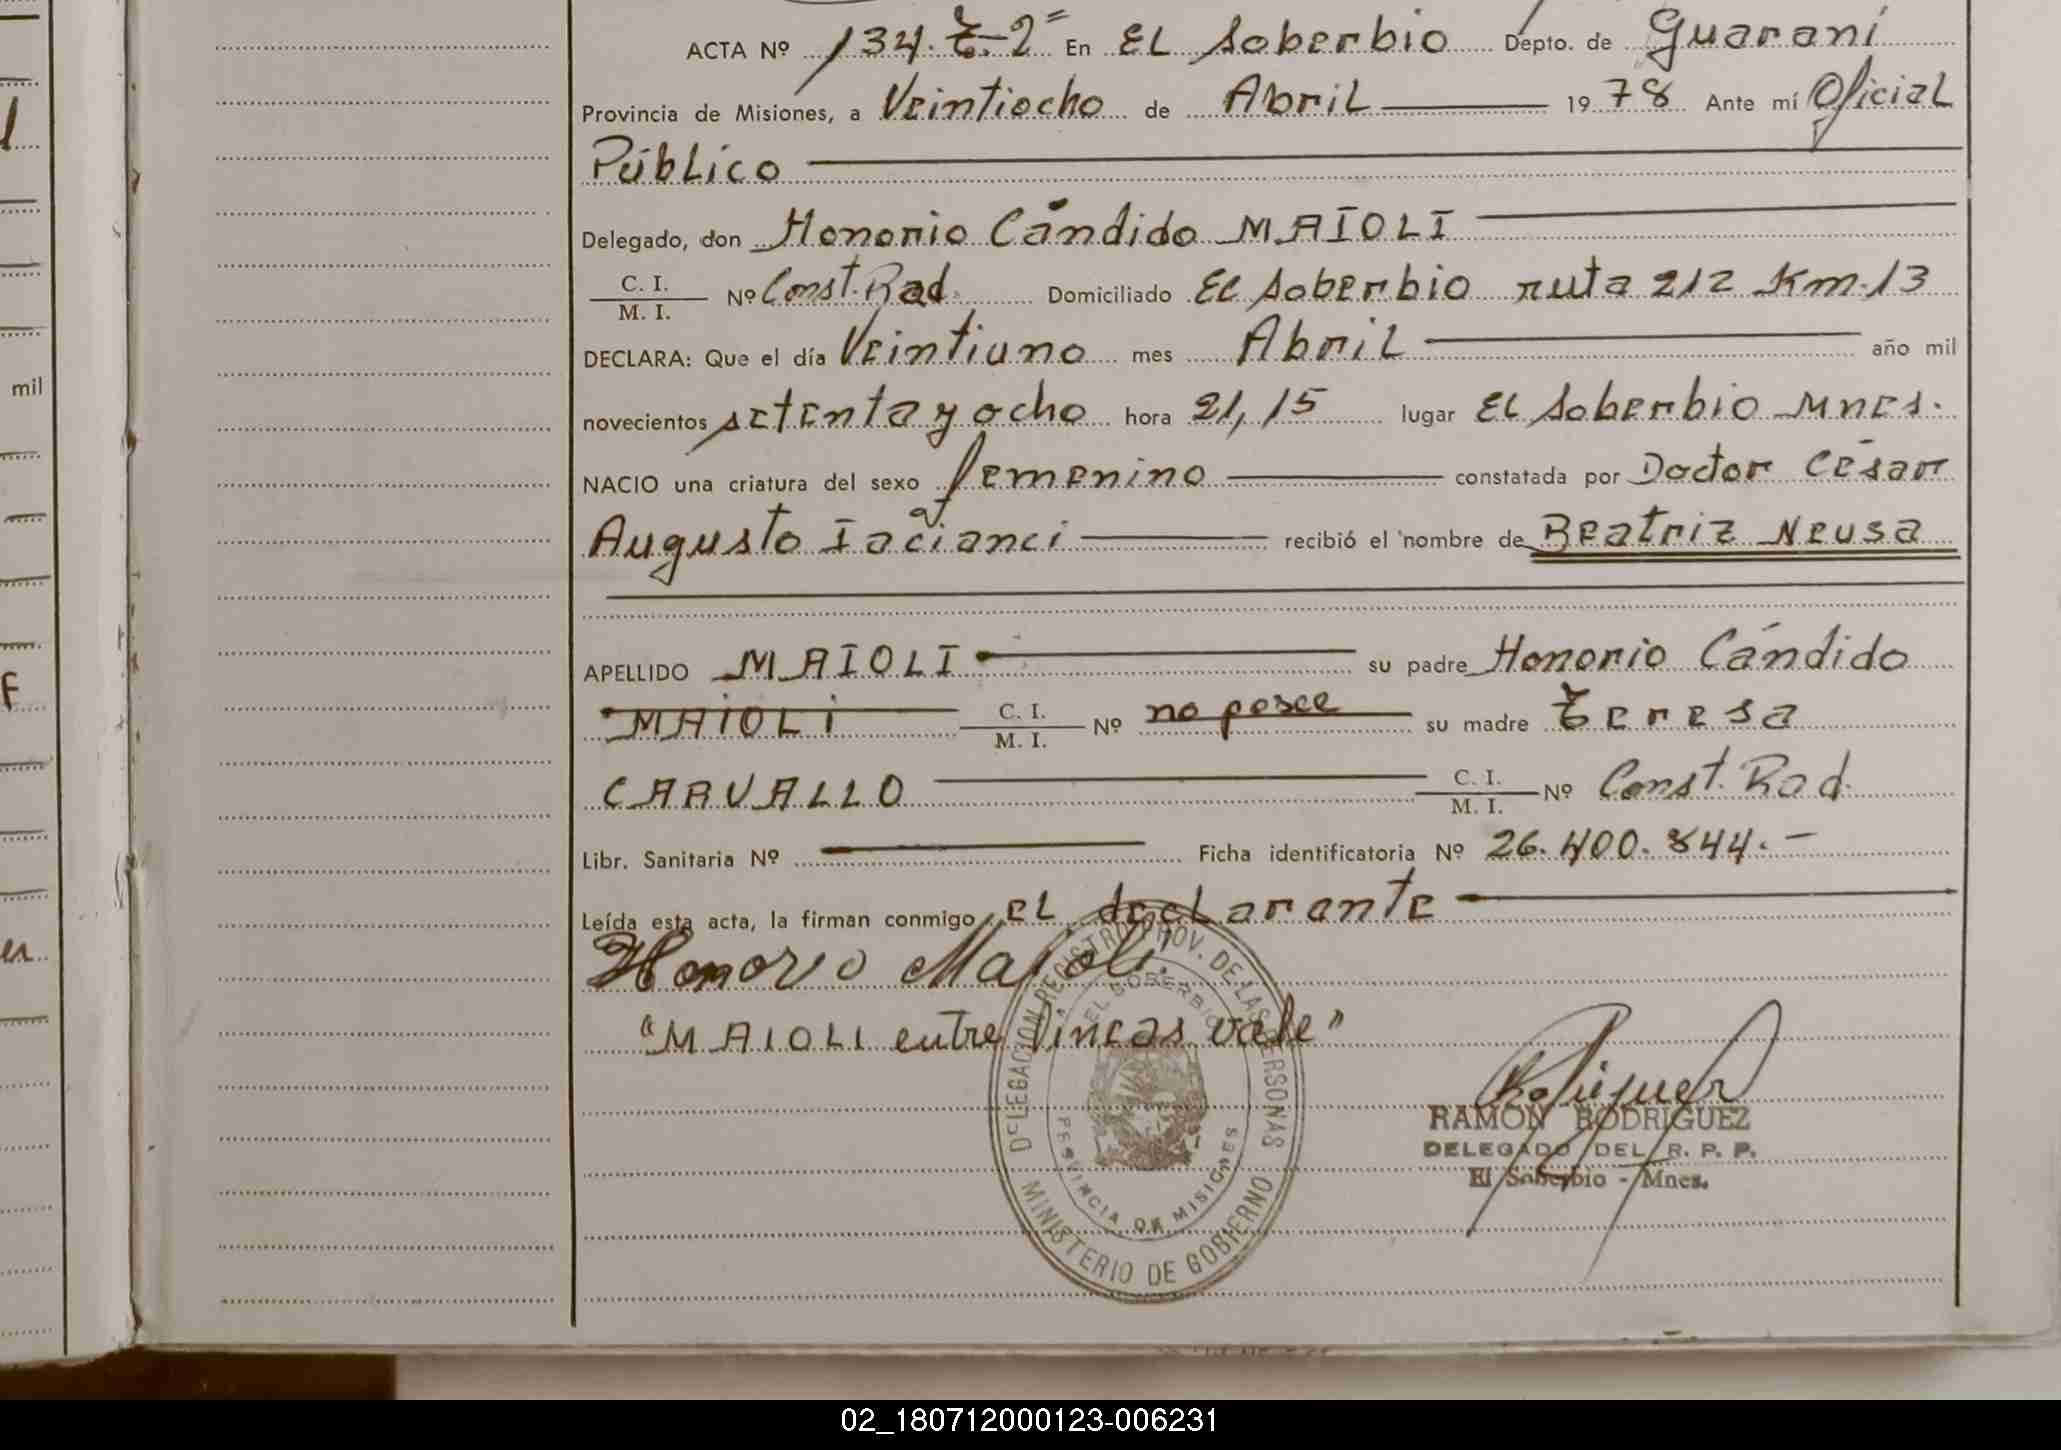 ACTA Nº 134. T. 2º En EL Soberbio Depto. de Guaraní
Provincia de Misiones, a Veintiocho de Abril 19 78 Ante mí Oficial
Público
Delegado, don Honorio Cándido MAIOLI
C. I.
M. I. Nº Const. Rad. Domiciliado El Soberbio ruta 212 Km. 13
DECLARA: Que el día Veintiuno mes Abril año mil
novecientos setenta y ocho hora 21,15 lugar El Soberbio Mnes.
NACIO una criatura del sexo femenino constatada por Doctor César
Augusto recibió el nombre de Beatriz Neusa
APELLIDO MAIOLI su padre Honorio Cándido
MAIOLI C. I.
M. I. Nº no posee su madre Teresa
CARVALLO C. I.
M. I. Nº Const. Rad.
Libr. Sanitaria Nº Ficha identificatoria Nº 26.400.844.-
Leída esta acta, la firman conmigo, el declarante
Honorio Maioli
"MAIOLI entre lineas vale"
DELEGACION REGISTRO PROV. DE LAS PERSONAS
EL SOBERBIO
PROVINCIA DE MISIONES
MINISTERIO DE GOBIERNO
RAMON RODRIGUEZ
DELEGADO DEL R. P. P.
El Soberbio - Mnes.
mil
02_180712000123-006231